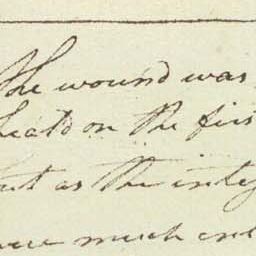 the wound was
heald on the firs
but as the integ
were much ent